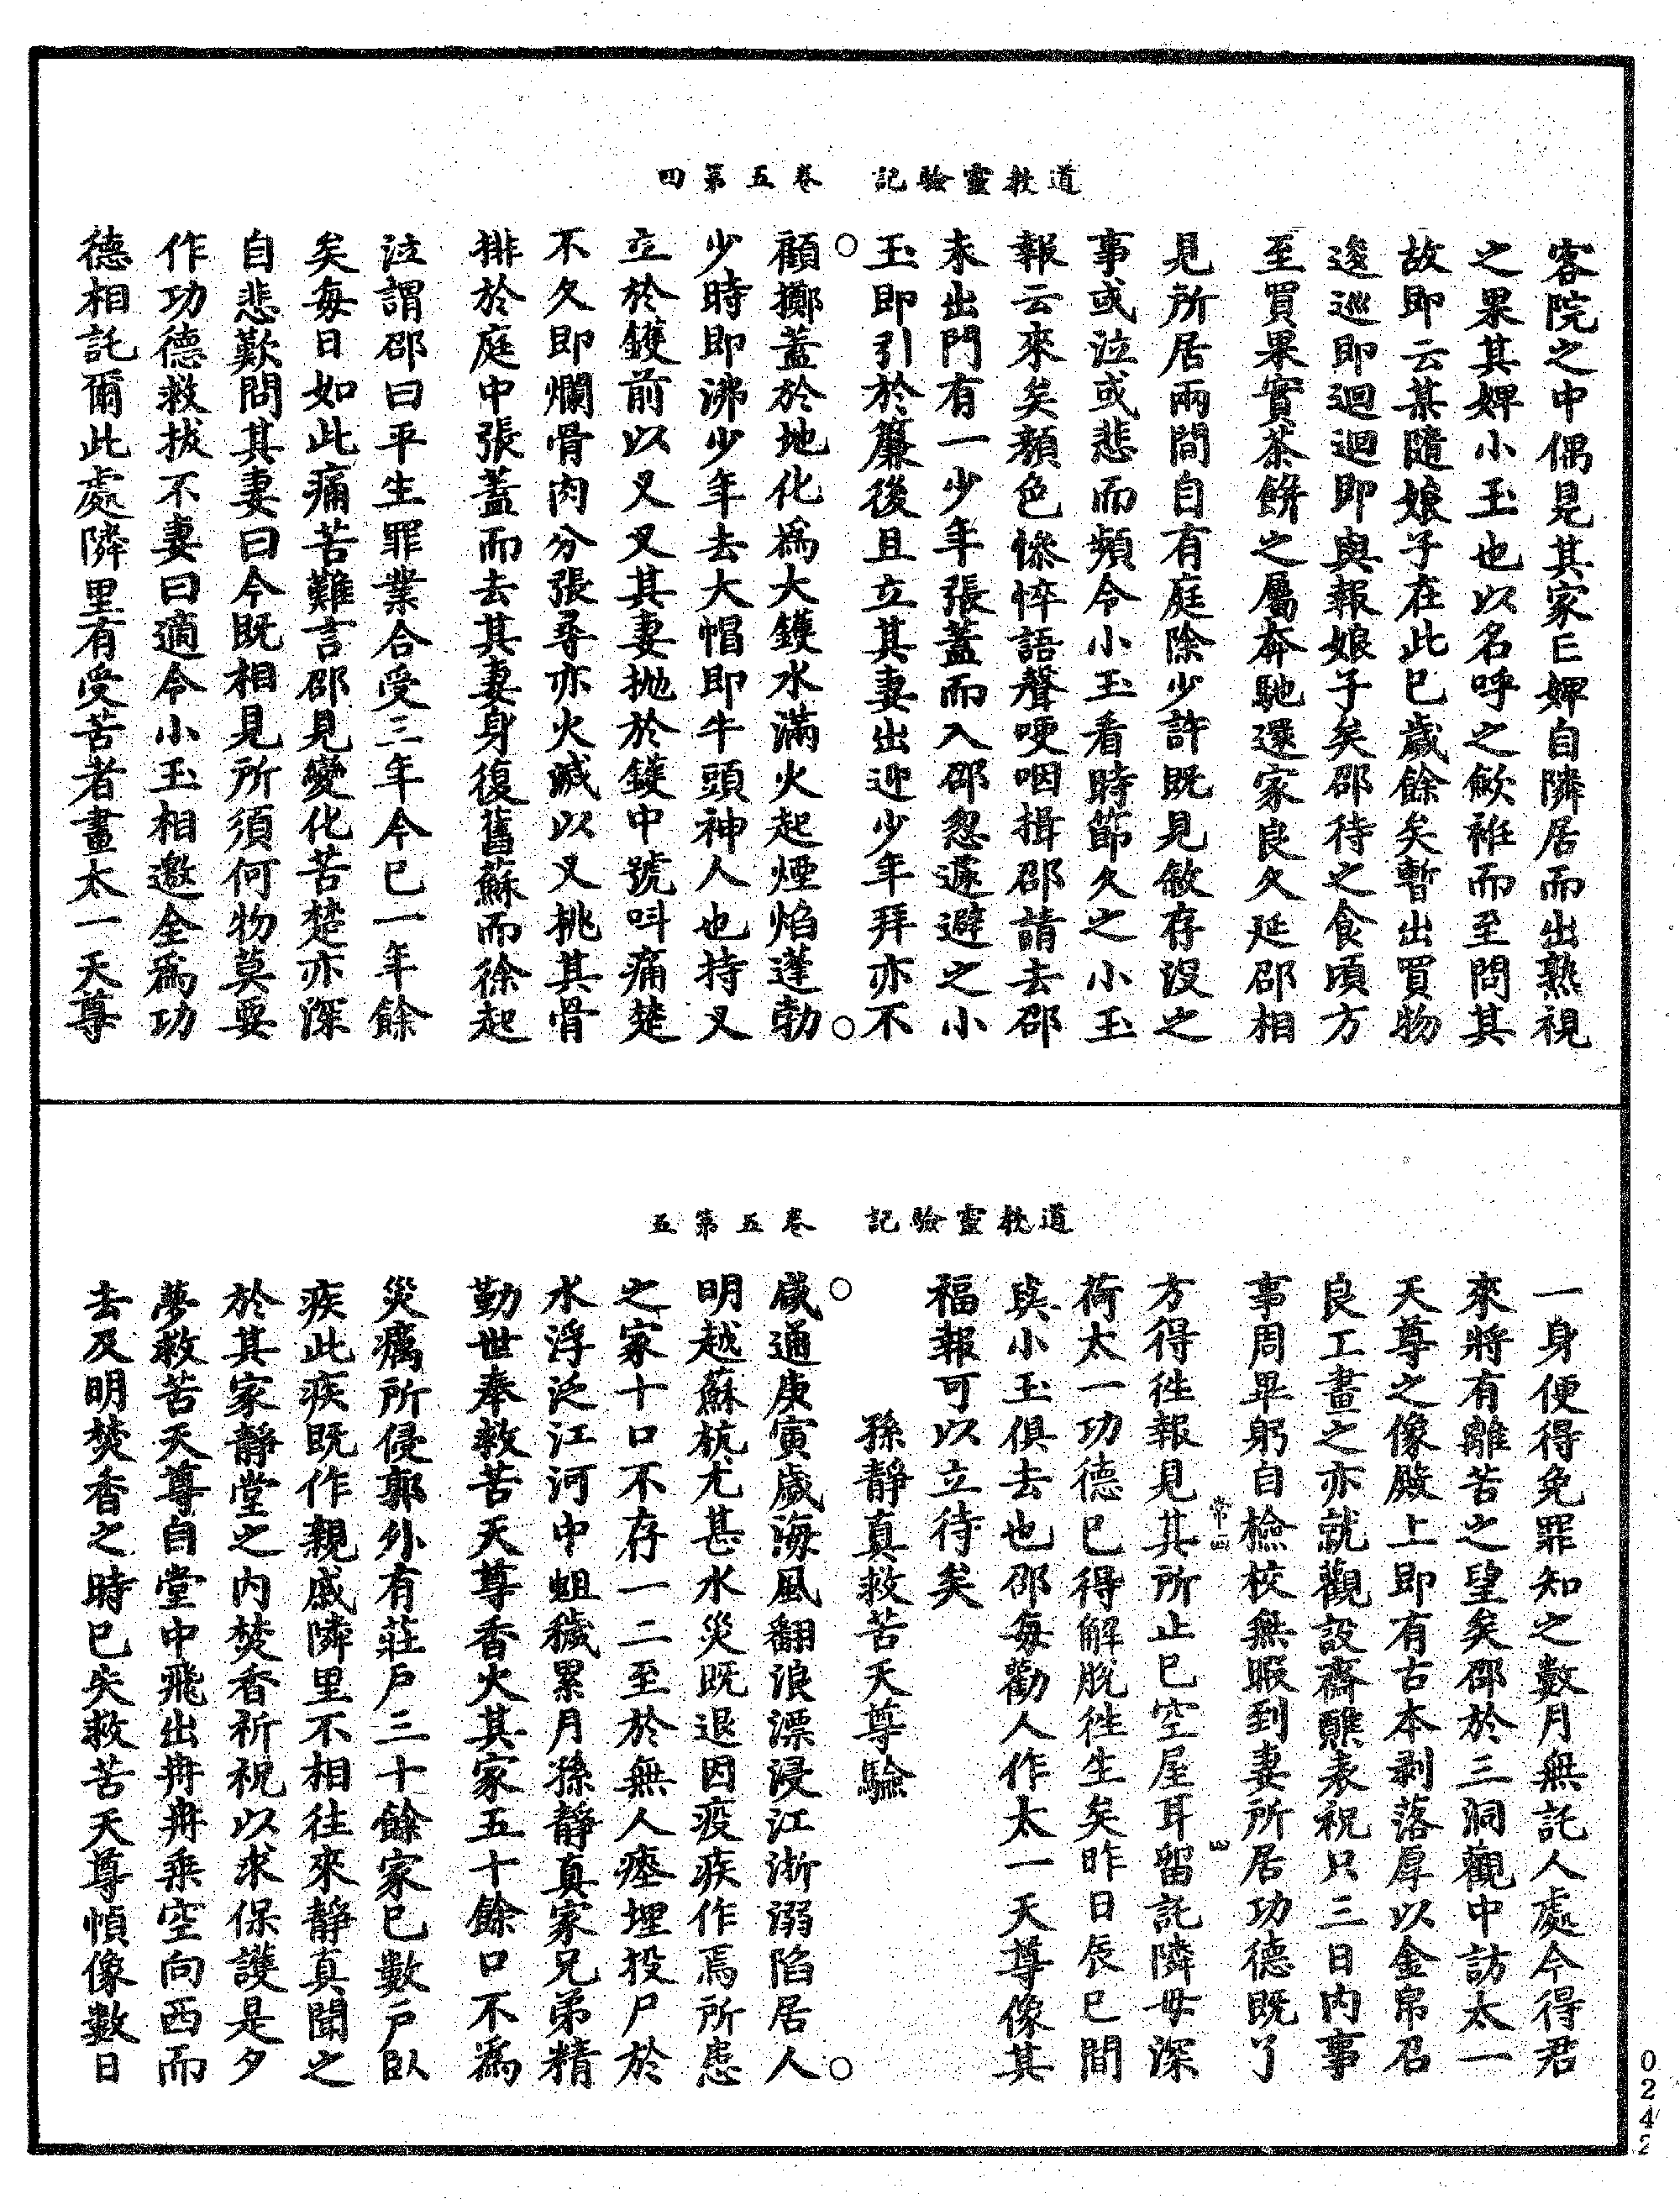 道教靈驗記 卷五第四
客院之中偶見其家亡婢自隣居而出熟視
之果其婢小玉也以名呼之歛袵而至問其
故即云某隨娘子在此已歲餘矣暫出買物
逡巡即迴迴即與報娘子矣邵待之食頃方
至買果實茶餅之屬奔馳還家良久延邵相
見所居兩間自有庭除少許既見敘存沒之
事或泣或悲而頻令小玉看時節久之小玉
報云來矣顏色慘悴語聲哽咽揖邵請去邵
未出門有一少年張蓋而入邵忽遽避之小
玉即引於簾後且立其妻出迎少年拜亦不
顧擲蓋於地化為大鑊水滿火起煙焰蓬勃
少時即沸少年去大帽即牛頭神人也持叉
立於鑊前以叉叉其妻拋於鑊中號叫痛楚
不久即爛骨肉分張尋亦火滅以叉挑其骨
排於庭中張蓋而去其妻身復舊蘇而徐起
泣謂邵曰平生罪業合受三年今已一年餘
矣每日如此痛苦難言邵見變化苦楚亦深
自悲歎問其妻曰今既相見所須何物莫要
作功德救拔不妻曰適令小玉相邀全為功
德相託爾此處隣里有受苦者畫太一天尊
道教靈驗記 卷五第五
一身便得免罪知之數月無託人處今得君
來將有離苦之望矣邵於三洞觀中訪太一
天尊之像殿上即有古本剥落厚以金帛召
良工畫之亦就觀設齋醮表祝只三日內事
事周畢躬自檢校無暇到妻所居功德既了
方得徃報見其所止已空屋耳留託隣母深
荷太一功德已得解脫徃生矣昨日辰巳間
與小玉俱去也邵每勸人作太一天尊像其
福報可以立待矣
孫靜真救苦天尊驗
咸通庚寅歲海風翻浪漂浸江浙溺陷居人
明越蘇杭尤甚水災既退因疫疾作焉所患
之家十口不存一二至於無人瘞埋投尸於
水浮泛江河中蛆穢累月孫靜真家兄弟精
勤世奉救苦天尊香火其家五十餘口不為
災癘所侵郭外有莊戶三十餘家已數戶臥
疾此疾既作親戚隣里不相往來靜真聞之
於其家靜堂之內焚香祈祝以求保護是夕
夢救苦天尊自堂中飛出冉冉乘空向西而
去及明焚香之時已失救苦天尊幀像數日
0242